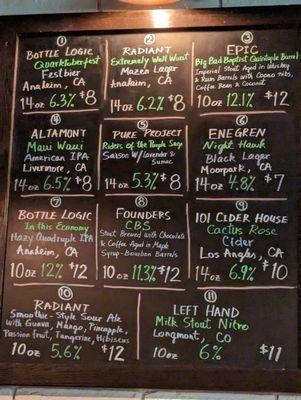 ①
BOTTLE LOGIC
Quarktoberfest
Festbier
Anaheim, CA
14oz 6.3% $8
②
RADIANT
Extremely Well Wurst
Märzen Lager
Anaheim, CA
14oz 6.2% $8
③
EPIC
Big Bad Baptist Quintuple Barrel
Imperial Stout Aged in Whiskey
& Rum Barrels with Cacao nibs,
Coffee Bean & Coconut
10oz 12.1% $12
④
ALTAMONT
Maui Waui
American IPA
Livermore, CA
14oz 6.5% $8
⑤
PURE PROJECT
Riders of the Purple Sage
Saison w/ Lavender &
Sumac
14oz 5.3% $8
⑥
ENEGREN
Night Hawk
Black Lager
Moorpark, CA
14oz 4.8% $7
⑦
BOTTLE LOGIC
In this Economy
Hazy Quadruple IPA
Anaheim, CA
10oz 12% $12
⑧
FOUNDERS
CBS
Stout Brewed with Chocolate
& Coffee Aged in Maple
Syrup-Bourbon Barrels
10oz 11.3% $12
⑨
101 CIDER HOUSE
Cactus Rose
Cider
Los Angeles, CA
14oz 6.9% $10
⑩
RADIANT
Smoothie-Style Sour Ale
with Guava, Mango, Pineapple,
Passion fruit, Tangerine, Hibiscus
10oz 5.6% $12
⑪
LEFT HAND
Milk Stout Nitro
Longmont, CO
10oz 6% $11